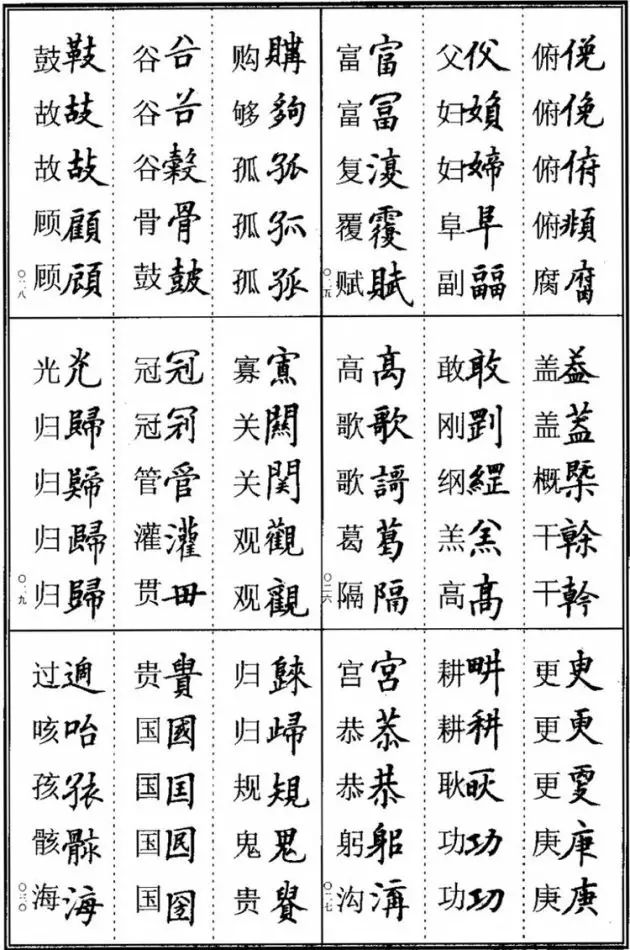 俯俛俯俛俯俯俯頫腐腐
父妇媍妇婦阜阜副疈
富富富冨复澓覆覆赋賦
〇二五
盖盖蓋概槩干榦干幹
敢敢刚㓻纲羔羔高髙
高高歌歌歌謌葛葛隔隔
〇二六
更更更更庚庚庚庚
耕畊耕耕耿耿功功功㓛
宫宮恭恭恭恭躬躳沟溝
〇二七
购購够夠孤孤孤孤孤孤
谷谷谷谷谷穀骨骨鼓皷
鼓故故故故顾顧顾頋
〇二八
寡寡关關关関观觀观觀
冠冠冠冠管管灌灌贯毌
光炗归歸归归归歸
〇二九
归归规規鬼鬼贵貴
贵貴国國国囯国国圀
过咳咍孩孩骸骸海海
〇三〇